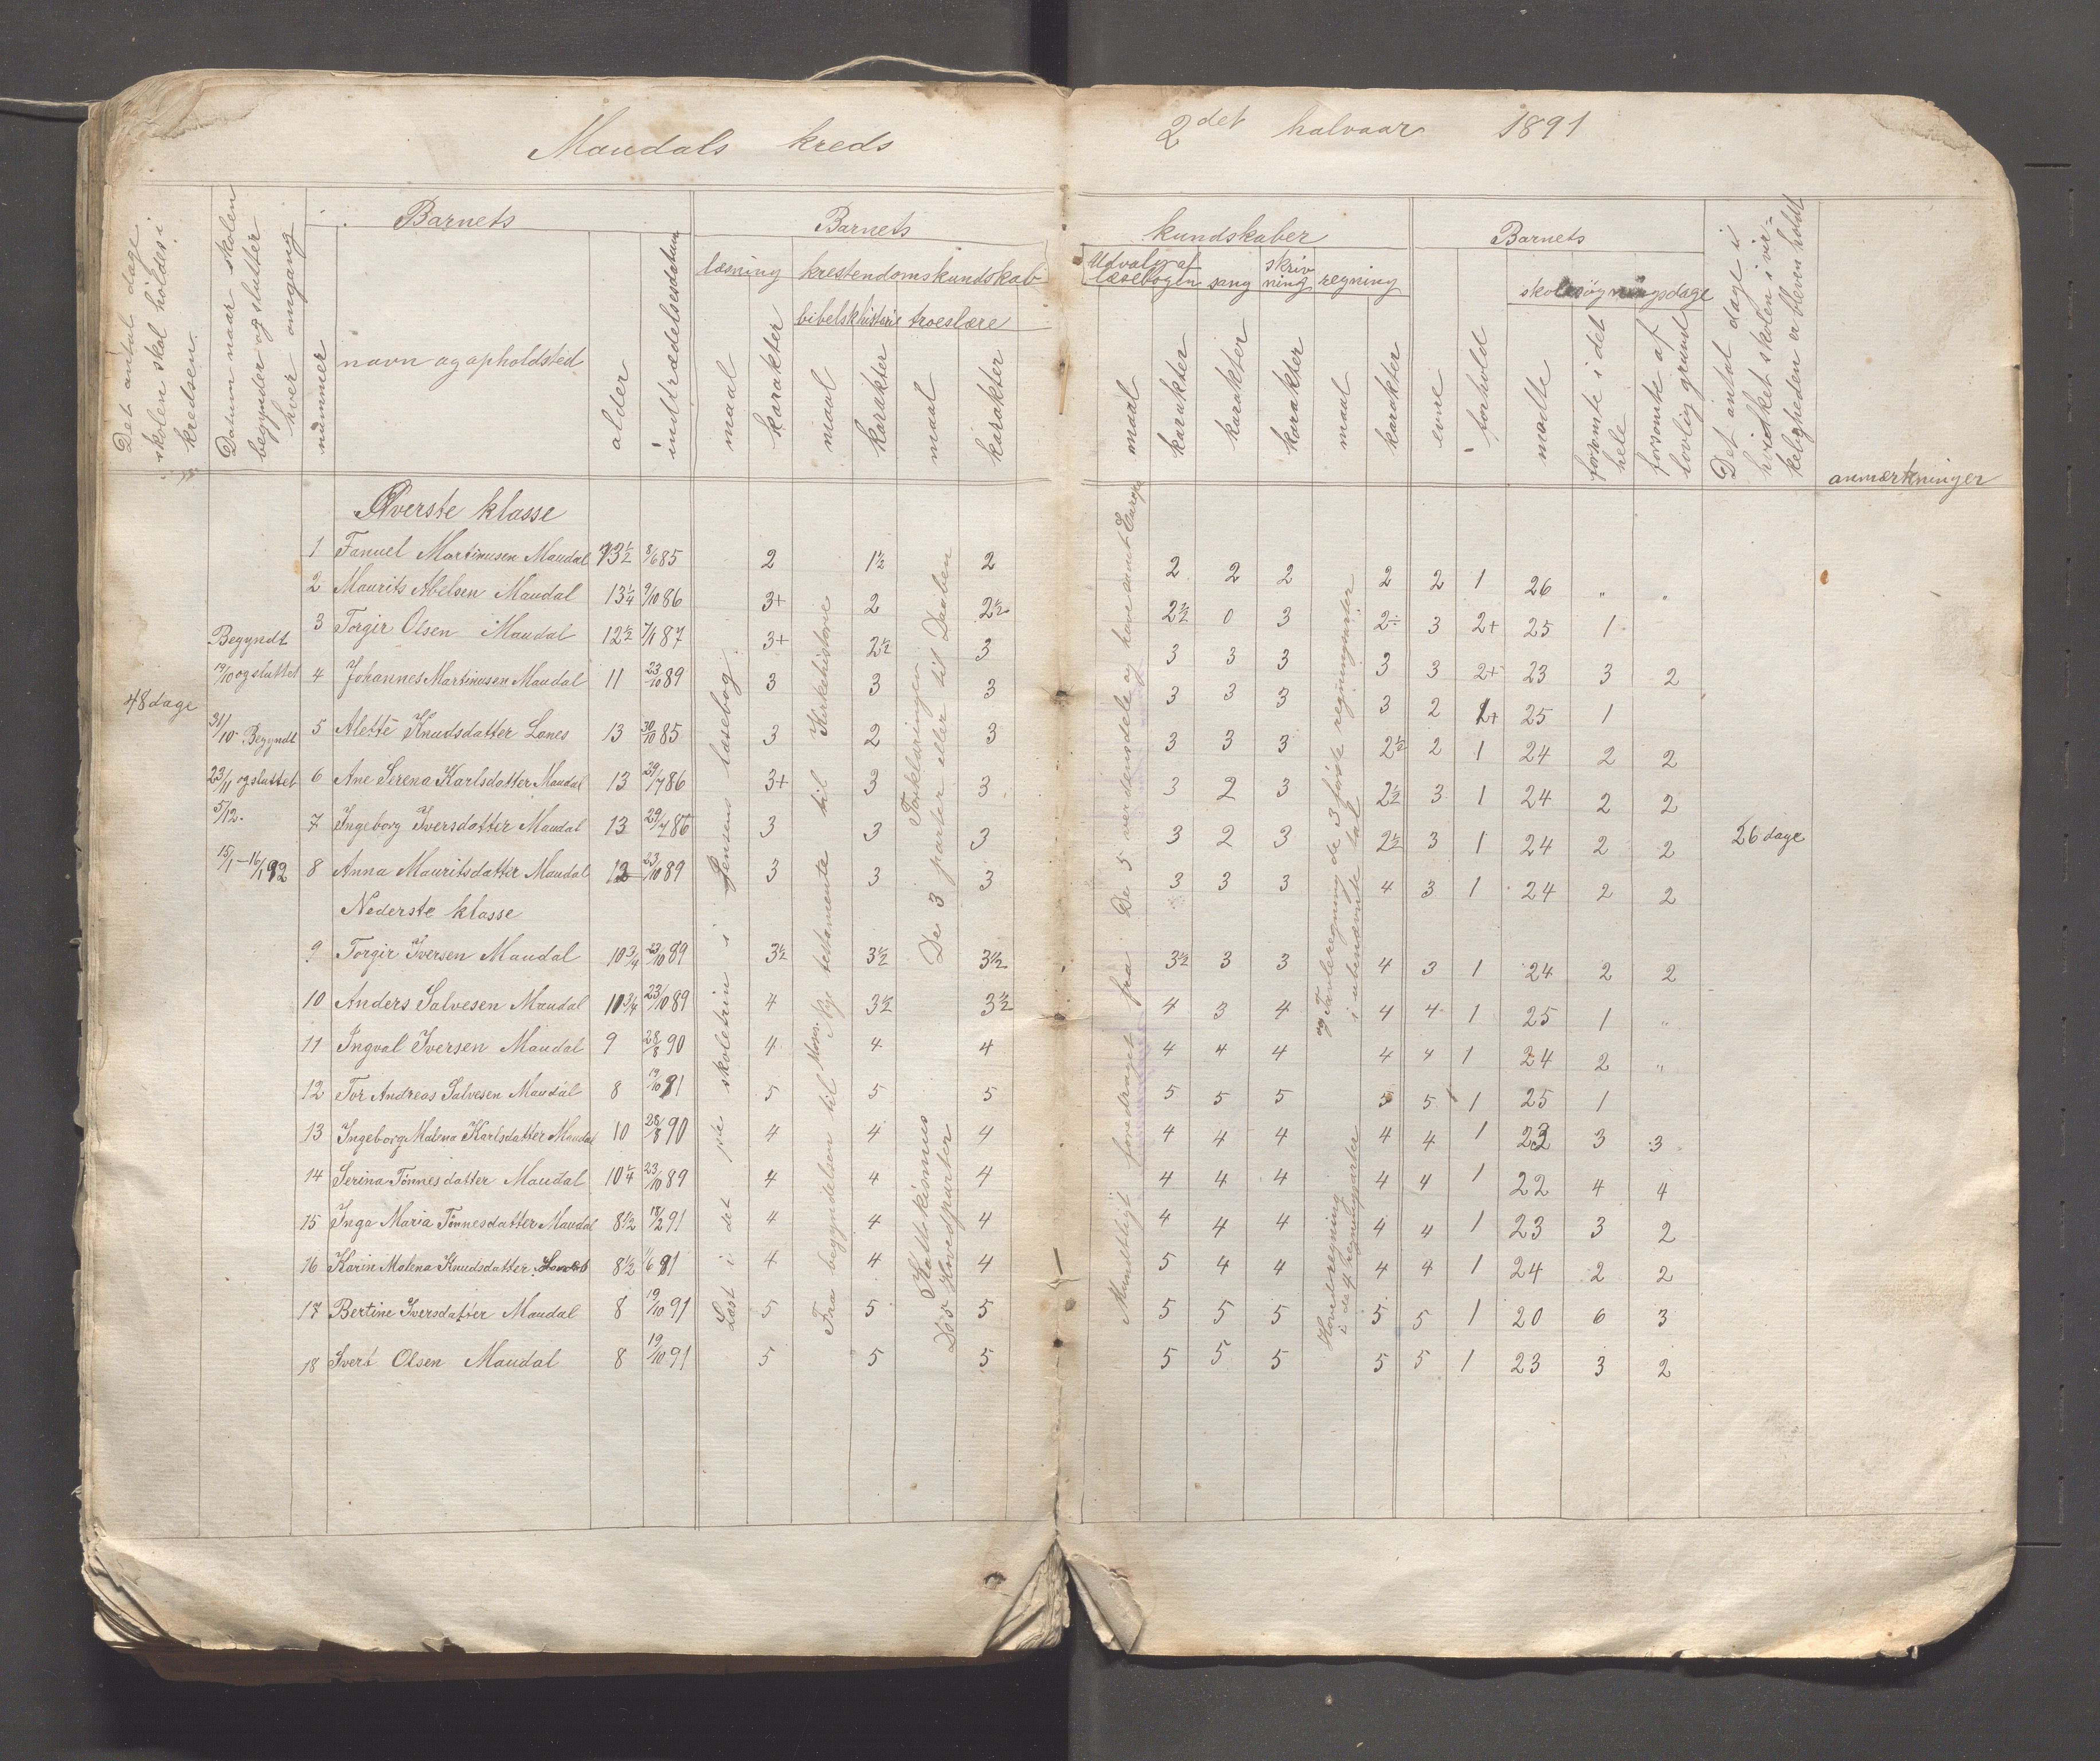 Maudals kreds
2det halvaar 1891
Det antal dage skolen skal holdes i kredsen.
Datum naar skolen begynder og slutter hver omgang
Barnets
nummer
navn og opholdsted
alder
indtrædelsesdatum
Barnets
læsning
krestendomskundskab
bibelskhistorie
troeslære
maal
karakter
maal
karakter
maal
karakter
kundskaber
Udvalg af læsebogen
sang
skrivning
regning
maal
karakter
karakter
karakter
maal
karakter
Barnets
evne
forhold
skolesøgningsdage
mødte
forsømte i det hele
forsømte af lovlig grund
Det antal dage i hvilket skolen i virkeligheden er bleven holdt
anmærkninger
Øverste klasse
1 Fanuel Martinusen Maudal 13½ 8/6 85 2 1½ 2 2 2 2 2 2 1 26 " "
2 Maurits Abelsen Maudal 13¼ 9/10 86 3+ 2 2½ 2½ 0 3 2÷ 3 2+ 25 1
3 Torgir Olsen Maudal 12½ 7/1 87 3+ 2½ 3 3 3 3 3 3 2+ 23 3 2
4 Johannes Martinusen Maudal 11 23/10 89 3 3 3 3 3 3 3 2 2+ 25 1
5 Alette Knudsdatter Lones 13 30/10 85 3 2 3 3 3 3 2½ 2 1 24 2 2
6 Ane Serena Karlsdatter Maudal 13 29/7 86 3+ 3 3 3 2 3 2½ 3 1 24 2 2
7 Ingeborg Iversdatter Maudal 13 29/7 86 3 3 3 3 2 3 2½ 3 1 24 2 2
8 Anna Mauritsdatter Maudal 12 23/10 89 3 3 3 3 3 3 4 3 1 24 2 2
Begyndt
19/10 og sluttet
31/10. Begyndt
23/11 og sluttet
5/12.
15/1–16/1 92
48 dage
26 dage
Nederste klasse
9 Torgir Iversen Maudal 10¾ 23/10 89 3½ 3½ 3½ 3½ 3 3 4 3 1 24 2 2
10 Anders Salvesen Maudal 10¾ 23/10 89 4 3½ 3½ 4 3 4 4 4 1 25 1 "
11 Ingval Iversen Maudal 9 28/8 90 4 4 4 4 4 4 4 4 1 24 2 "
12 Tor Andreas Salvesen Maudal 8 19/10 91 5 5 5 5 5 5 5 5 1 25 1
13 Ingeborg Malna Karlsdatter Maudal 10 28/8 90 4 4 4 4 4 4 4 4 1 23 3 3
14 Serina Tønnesdatter Maudal 10¼ 23/10 89 4 4 4 4 4 4 4 4 1 22 4 4
15 Inga Maria Tønnesdatter Maudal 8½ 18/2 91 4 4 4 4 4 4 4 4 1 23 3 2
16 Karin Malena Knudsdatter 8½ 1/6 91 4 4 4 5 4 4 4 4 1 24 2 2
17 Bertine Iversdatter Maudal 8 19/10 91 5 5 5 5 5 5 5 5 1 20 6 3
18 Ivert Olsen Maudal 8 19/10 91 5 5 5 5 5 5 5 5 1 23 3 2
Læst i det 1ste skoletrin i Jensens læsebog.
Fra begyndelsen til Mose. Nye testamente til Kirkehistorie
De 3 parter eller til Daaben
Forklaringen
Katekismus
De 5 Hovedparter
Mundtligt foredraget fra De 5 verdensdele og have iannt Europa
og Tavleregning de 3 første regningsarter
i ubenævnte tal
Hovedregning
i de 4 regningsarter